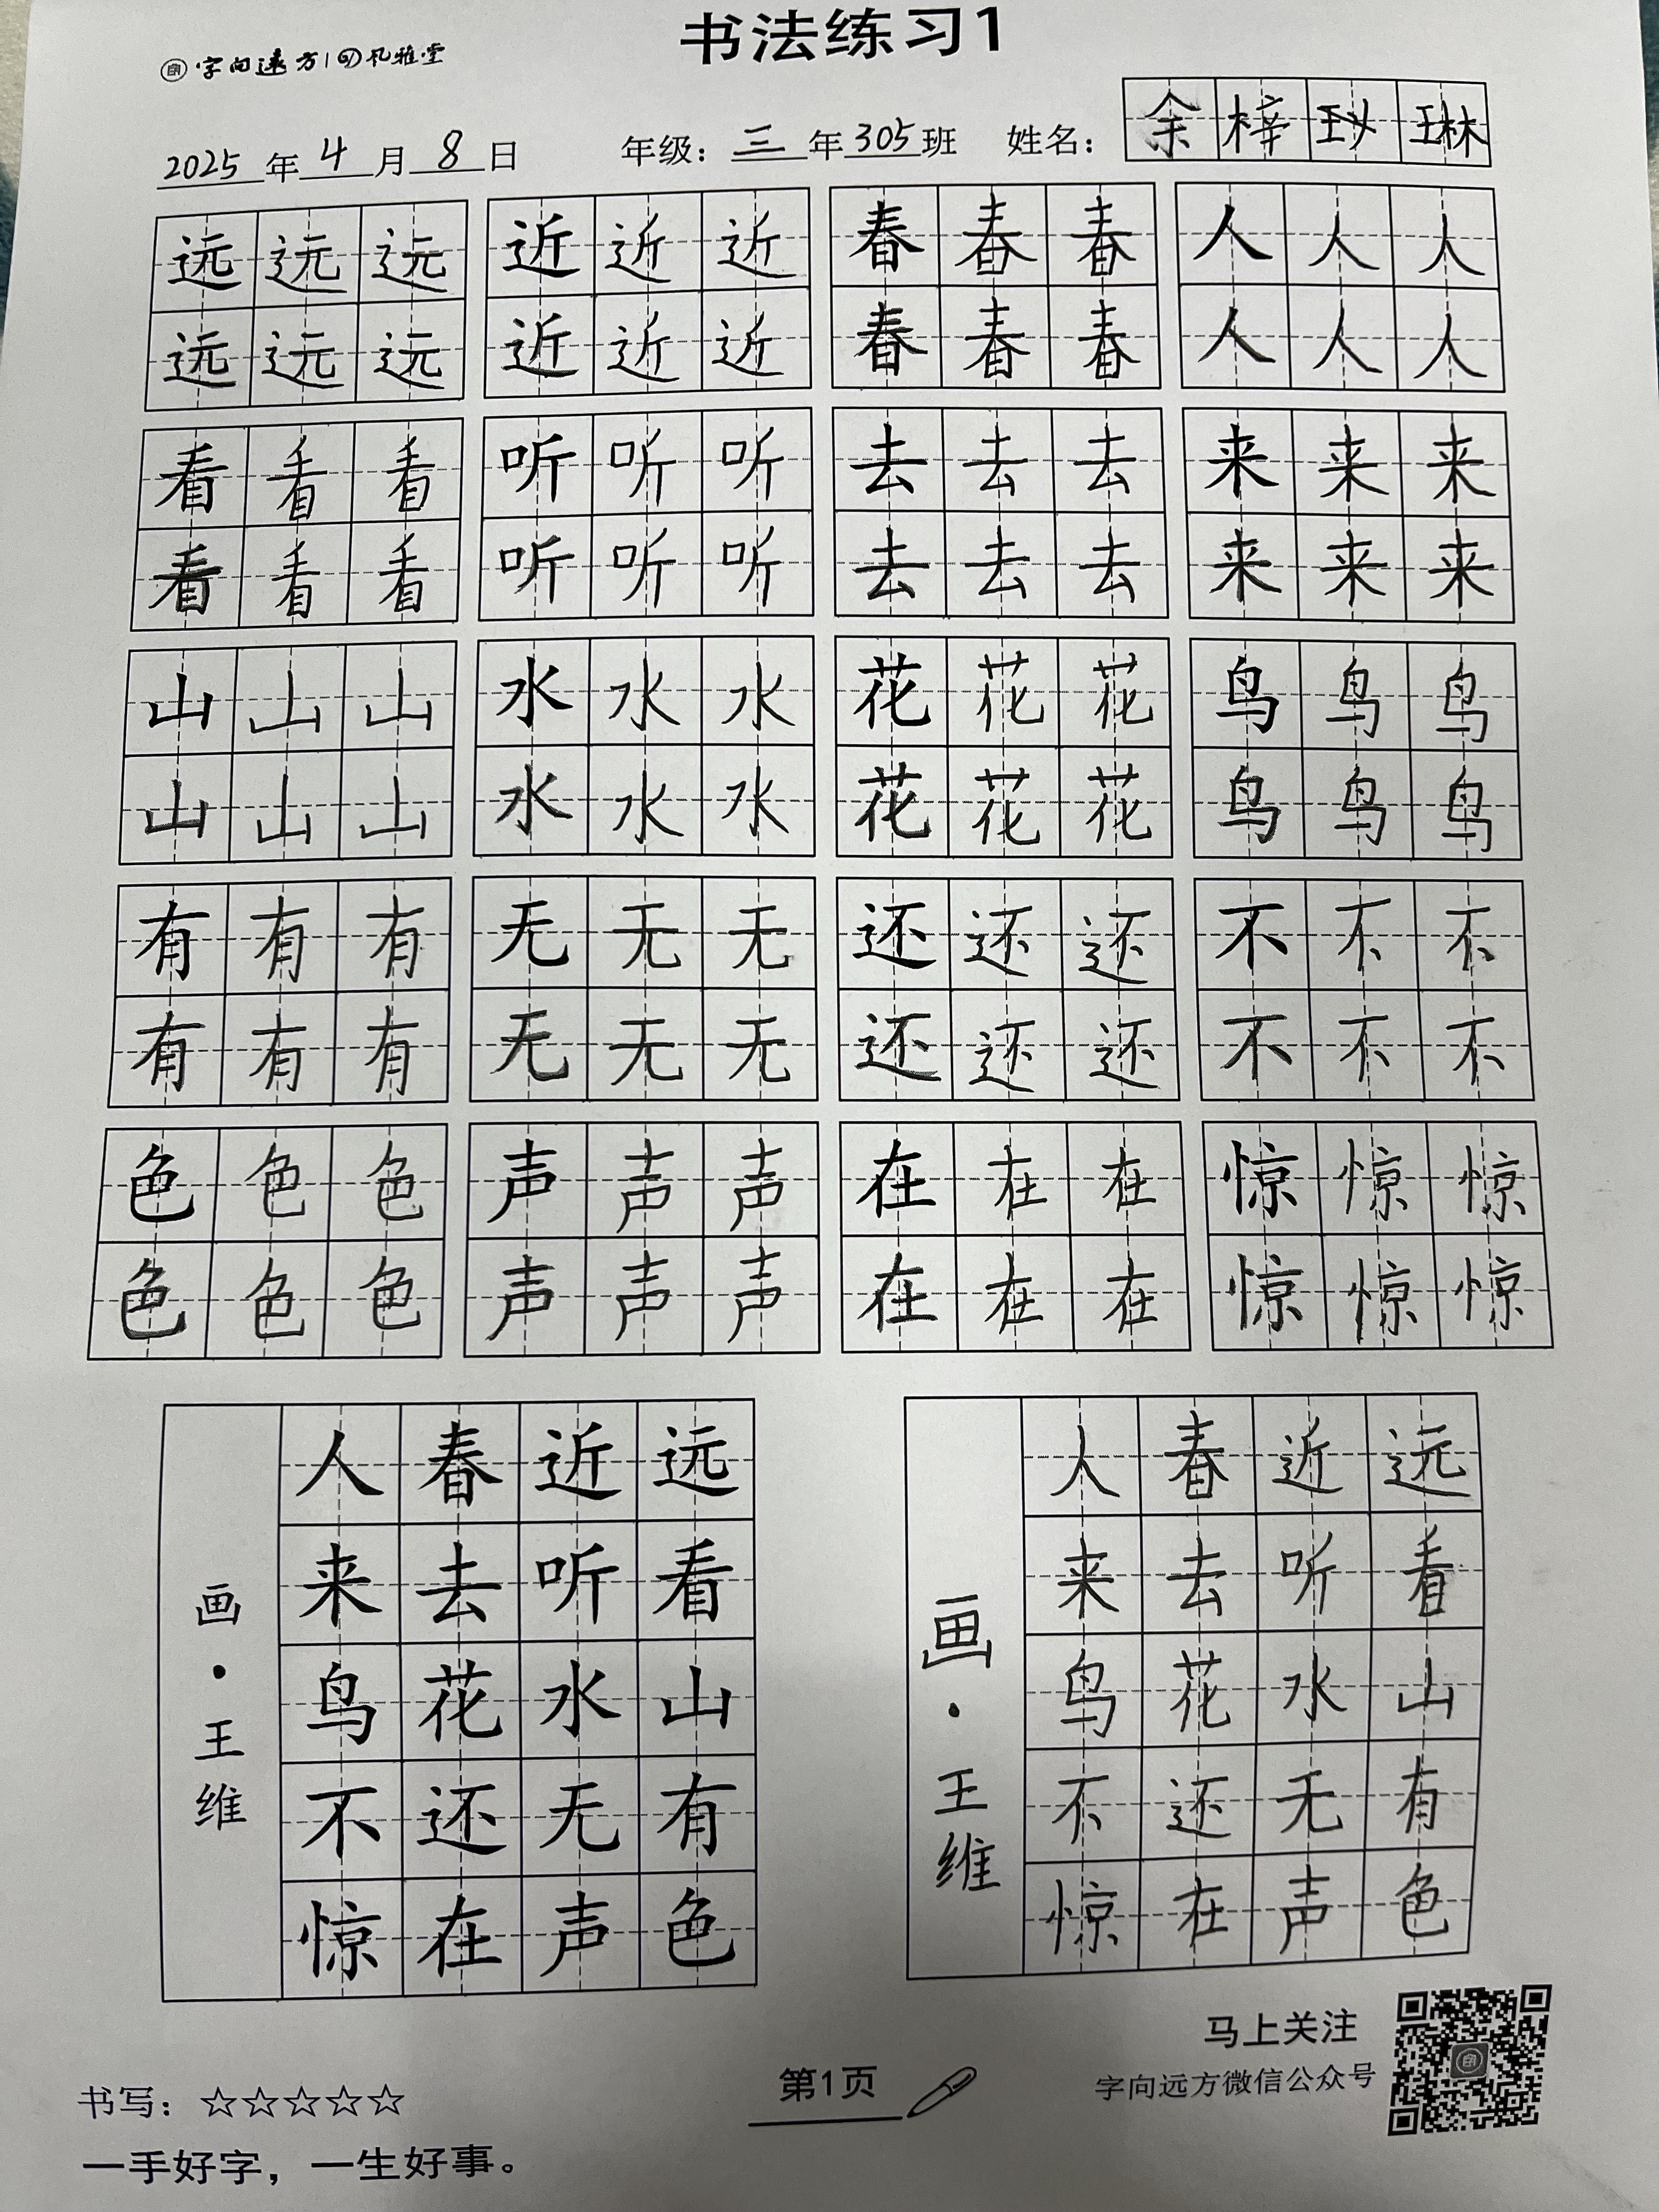 书法练习1
字向远方 孔雅堂
2025年4月8日 年级：三年305班 姓名：余梓玅琳
远远远 近近近 春春春 人人人
远远远 近近近 春春春 人人人
看看看 听听听 去去去 来来来
看看看 听听听 去去去 来来来
山山山 水水水 花花花 鸟鸟鸟
山山山 水水水 花花花 鸟鸟鸟
有有有 无无无 还还还 不不不
有有有 无无无 还还还 不不不
色色色 声声声 在在在 惊惊惊
色色色 声声声 在在在 惊惊惊
远看山有色
近听水无声
春去花还在
人来鸟不惊
画·王维
远看山有色
近听水无声
春去花还在
人来鸟不惊
画·王维
书写：☆☆☆☆☆
一手好字，一生好事。
第1页
马上关注
字向远方微信公众号